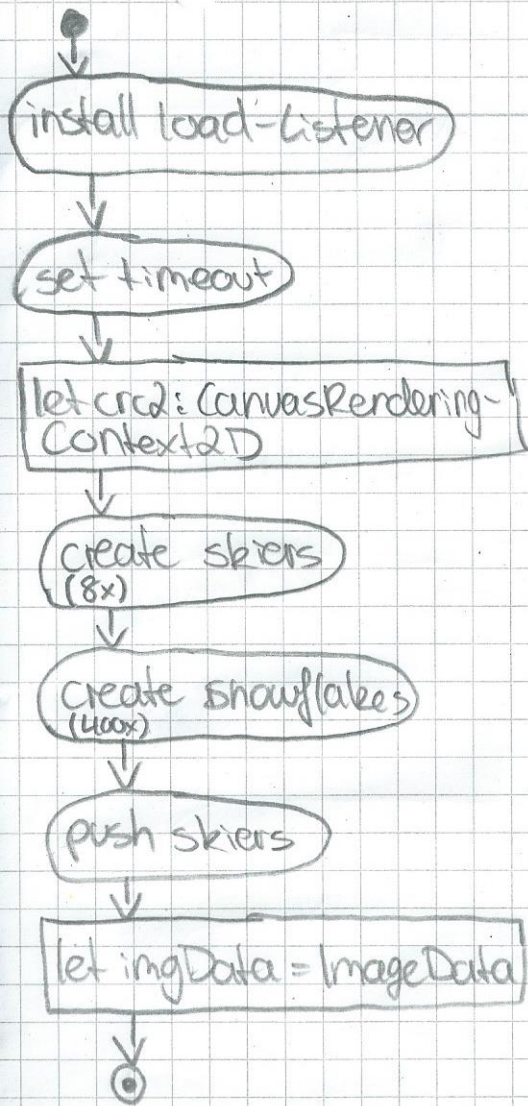 install load-Listener
set timeout
let crc2: CanvasRendering-
Context2D
create skiers
(8x)
create snowflakes
(400x)
push skiers
let imgData = ImageData